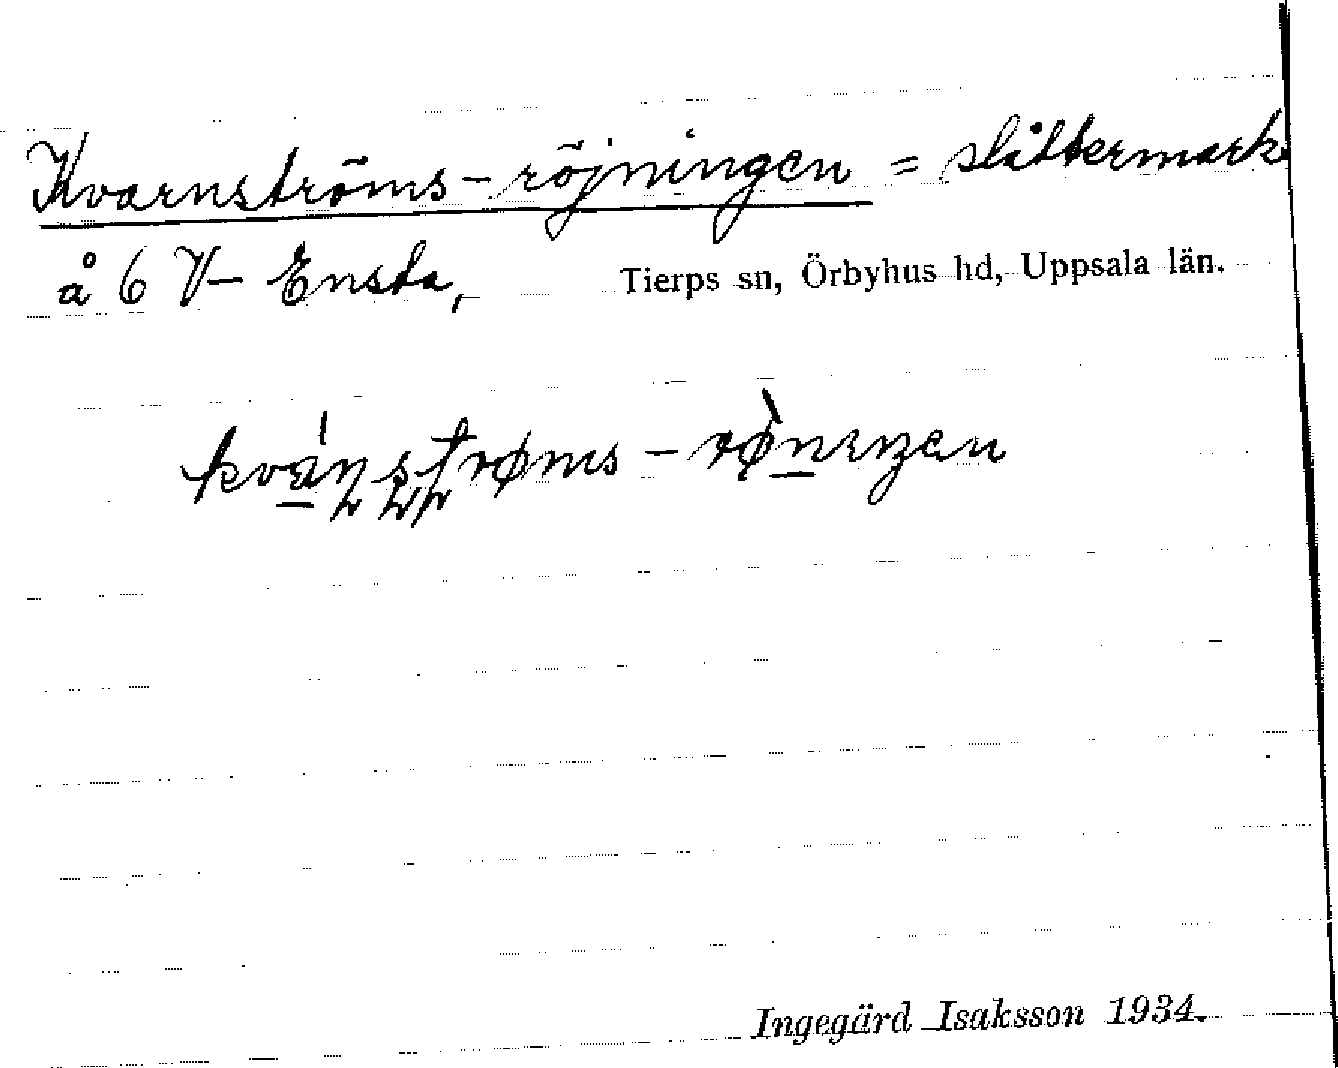 Kvarnströms-röjningen = slåttermark
å 6 V- Ensta, Tierps sn, Örbyhus hd, Uppsala län.
Ingegärd Isaksson 1934.